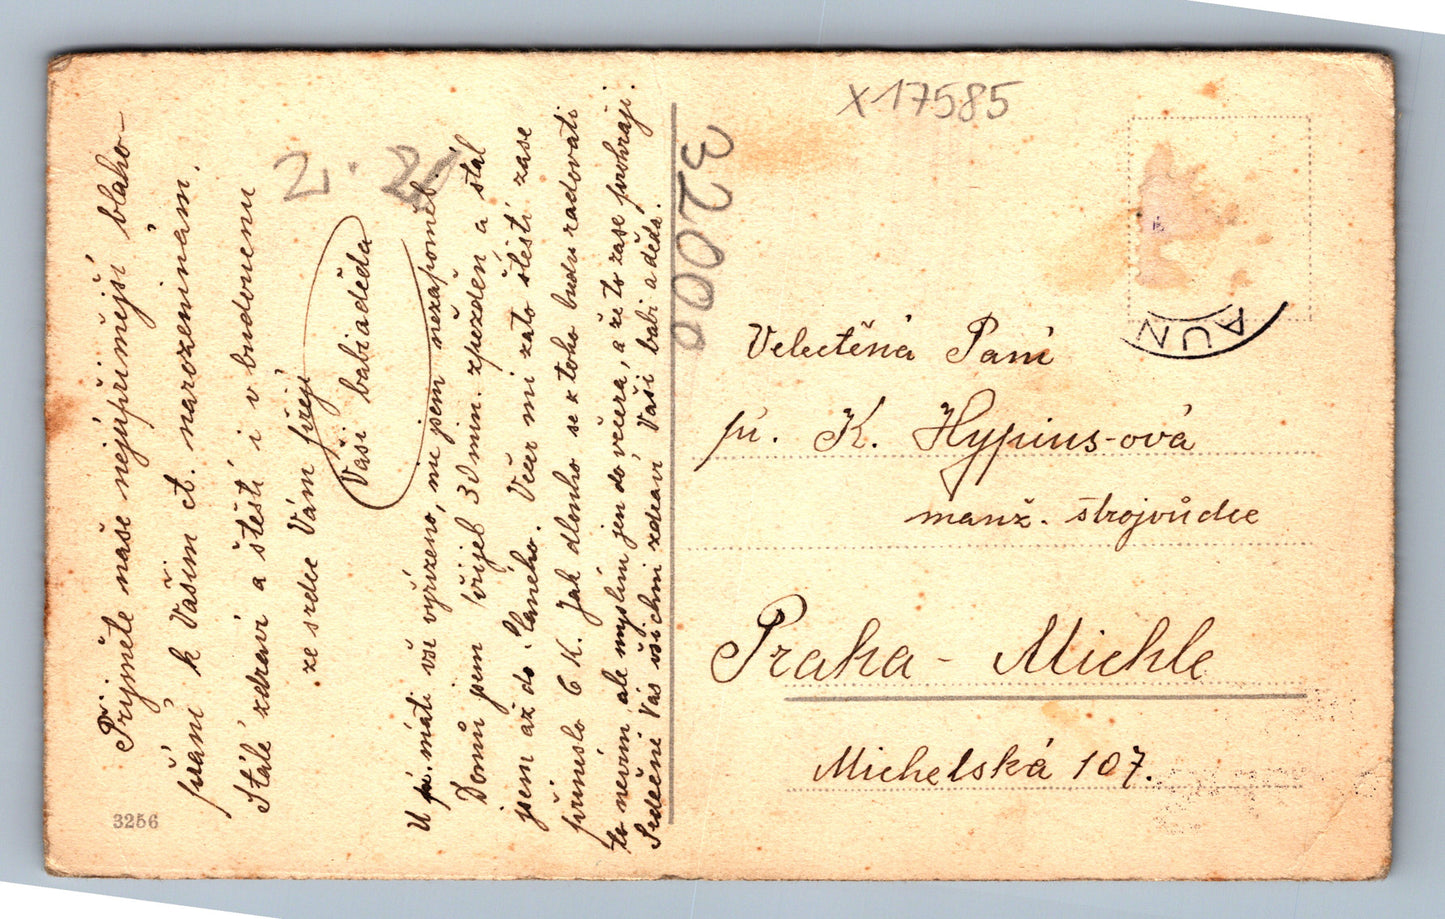 Přijměte naše nejupřímější blaho-
přání k Vašim ct. narozeninám.
Stálé zdraví a štěstí i v budoucnu
ze srdce Vám přejí
Vaši babi a děda
U pí. máti vše vyřízeno, nic jsem nezapoměl.
Domů jsem přijel 30 min. zpožděn a stál
jsem až do Vaného. Večer mi zato štěstí zase
přineslo 6 K. Jak dlouho se z toho budu radovati
to nevím, ale myslím jen do večera, a že to zase prohraji.
Srdečně Vás všichni zdraví Vaši babi a děda.
3256
2. 20
X17585
32000
AUN
Velectěná Paní
pí. K. Hypius-ová
manž. strojvůdce
Praha - Michle
Michelská 107.